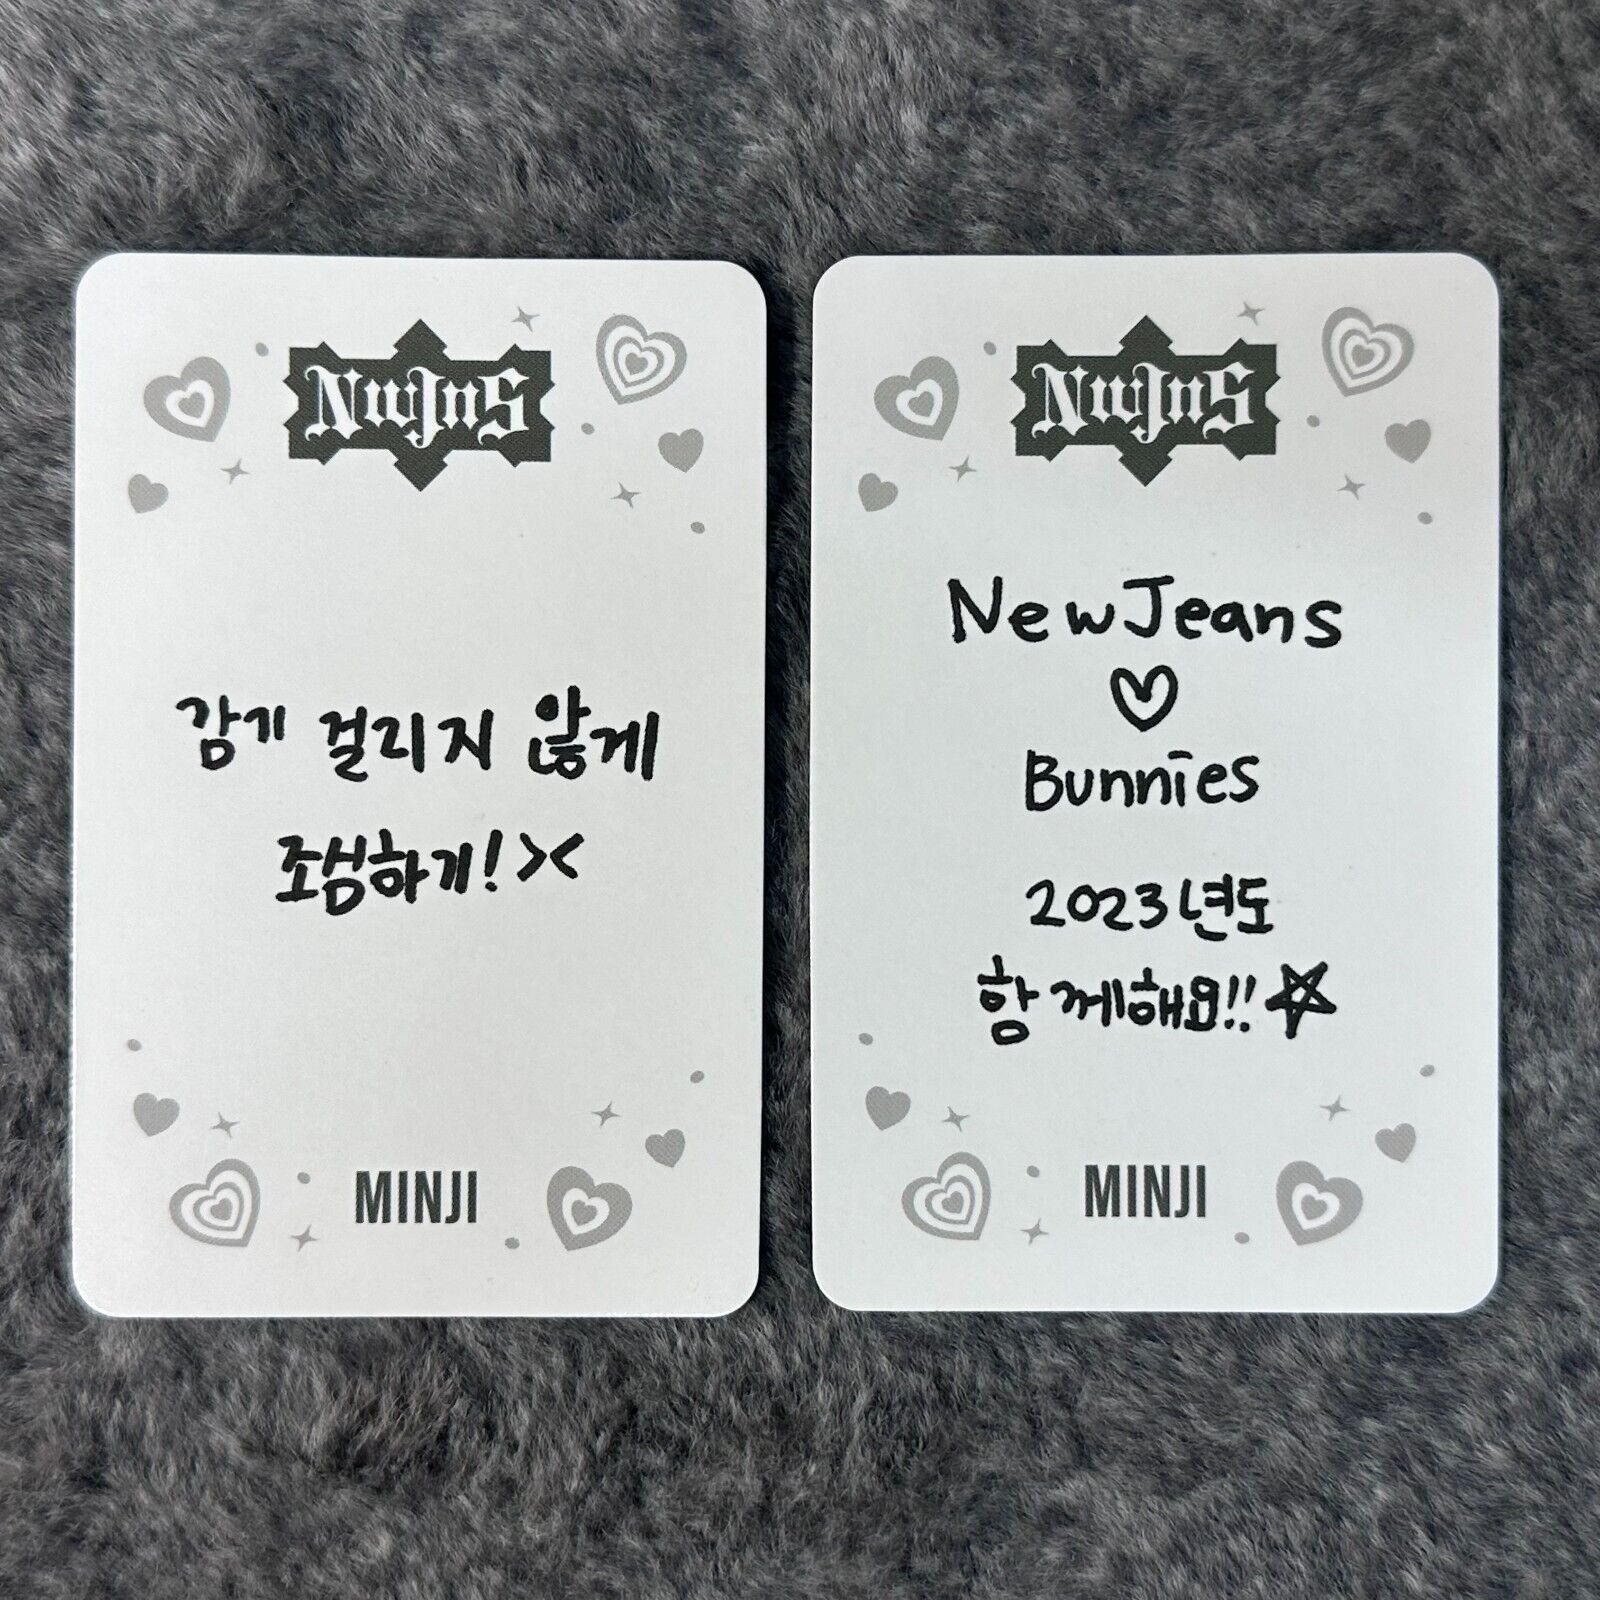 NwJnS
감기 걸리지 않게
조심하기!><
MINJI
NwJnS
NewJeans
♡
Bunnies
2023년도
함께해요!!☆
MINJI